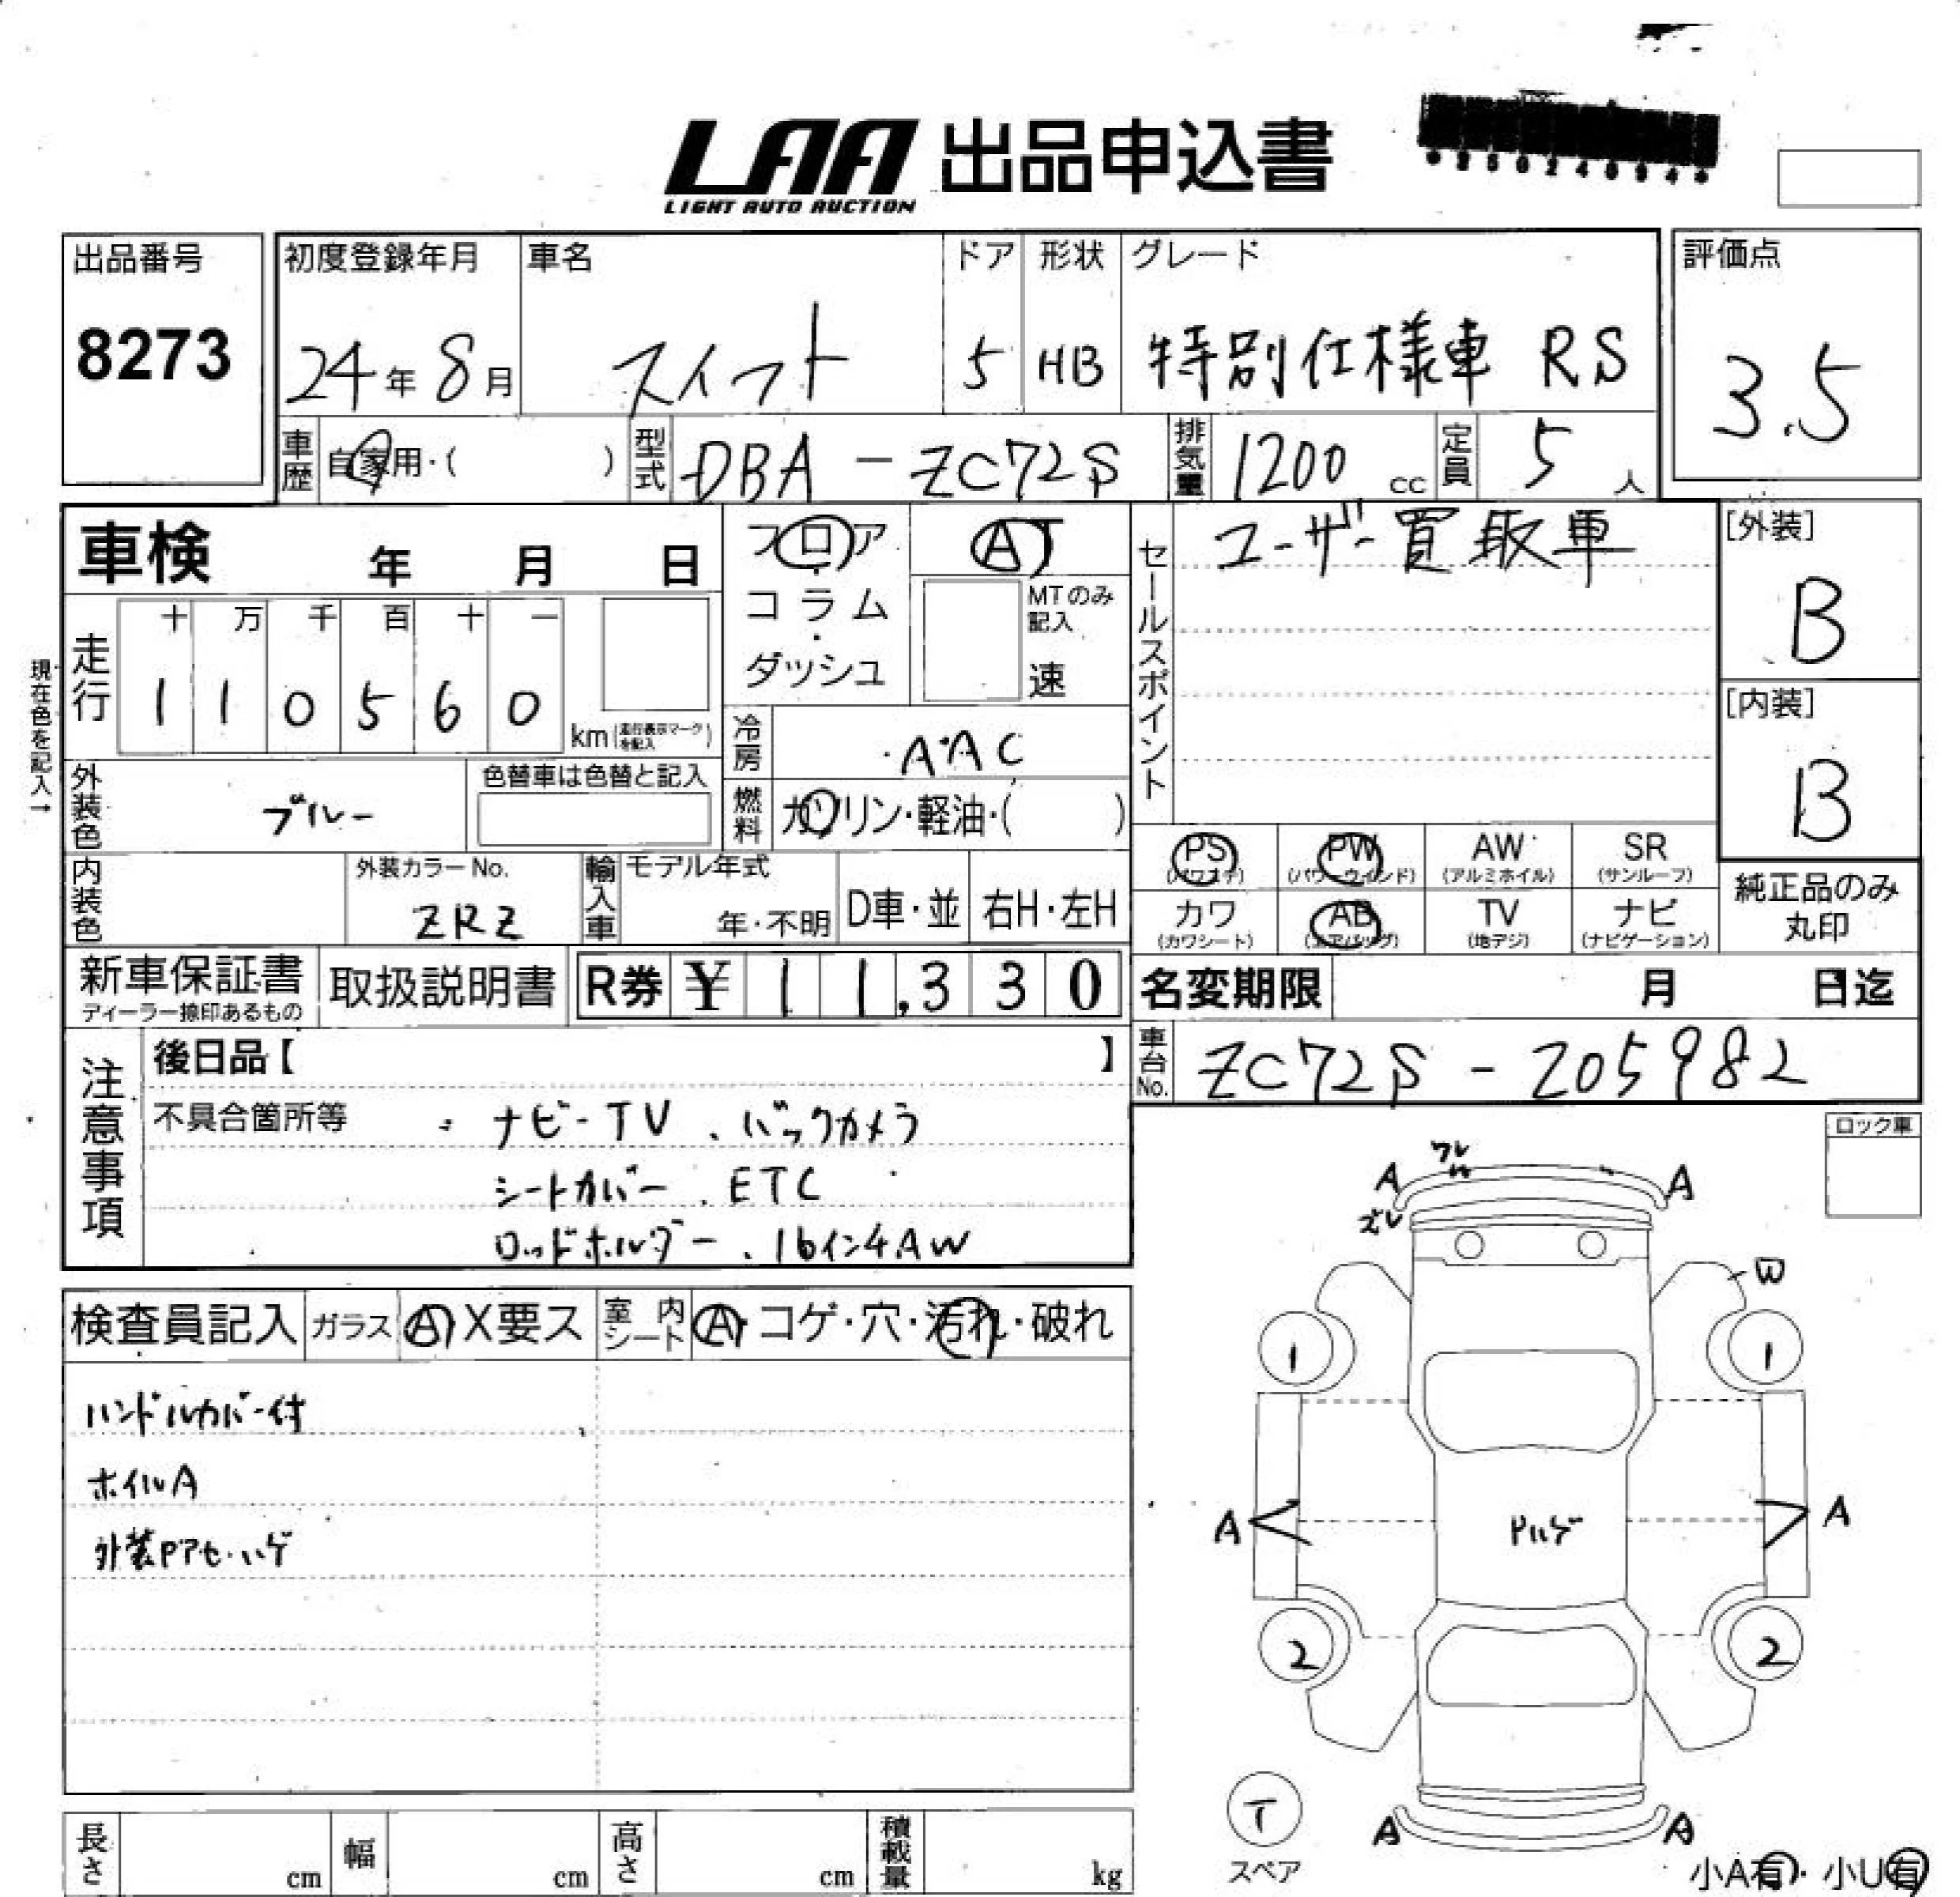 LAA 出品申込書
LIGHT AUTO AUCTION
出品番号
8273
初度登録年月
24年 8月
車名
スイフト
ドア
5
形状
HB
グレード
特別仕様車 RS
評価点
3.5
車歴 自家用・( )
型式 DBA-ZC72S
排気量 1200 cc
定員 5 人
車検 年 月 日
フロア・コラム・ダッシュ
AT
MTのみ記入
速
セールスポイント
ユーザー買取車
[外装]
B
[内装]
B
現在色を記入→
走行
十 万 千 百 十 一
1 1 0 5 6 0
km(走行表示マークを記入)
冷房 AAC
燃料 ガソリン・軽油・( )
外装色 ブルー
色替車は色替と記入
内装色
外装カラーNo.
ZRZ
輸入車
モデル年式
年・不明
D車・並
右H・左H
PS (パワステ)
PW (パワーウインド)
AW (アルミホイル)
SR (サンルーフ)
カワ (カワシート)
AB (エアバッグ)
TV (地デジ)
ナビ (ナビゲーション)
純正品のみ丸印
新車保証書
ディーラー捺印あるもの
取扱説明書
R券 ¥ 1 1,3 3 0
名変期限 月 日迄
車台No. ZC72S-205982
注意事項
後日品【 】
不具合箇所等
・ナビ-TV、バックカメラ
シートカバー、ETC
ロッドホルダー、16インチAW
ロック車
検査員記入
ガラス A X要ス
室内シート A・コゲ・穴・汚れ・破れ
ハンドルカバー付
ホイルA
外装Pアセ・ハゲ
A ワレ A
ズレ
W
1 1
A Pハゲ A
2 2
T
スペア
A A
小A有・小U有
長さ cm
幅 cm
高さ cm
積載量 kg